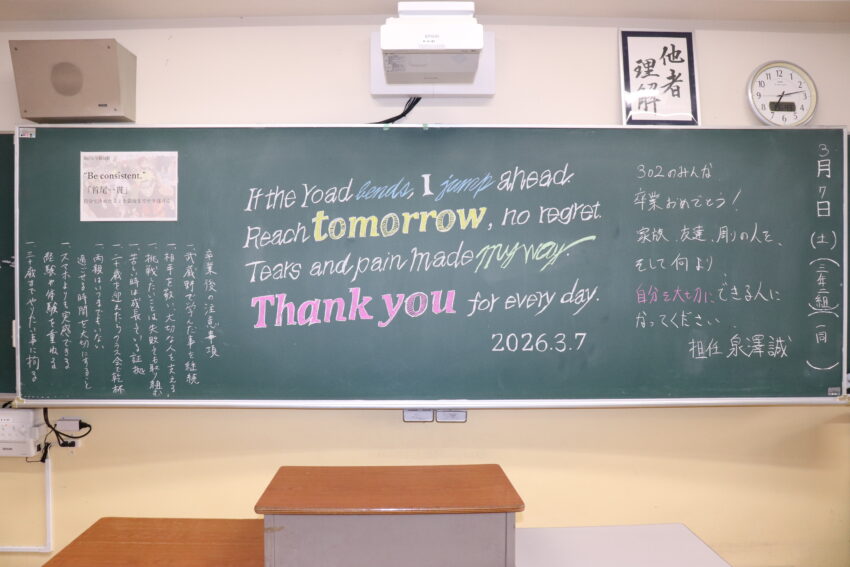 EPSON
他者
理解
"Be consistent."
「首尾一貫」
If the road bends, I jump ahead.
Reach tomorrow, no regret.
Tears and pain made my way.
Thank you for every day.
2026.3.7
卒業後の注意事項
一、武蔵野で学んだ事を継続
一、相手を敬い、大切な人を支える。
一、挑戦したいことは失敗しても取り組む
一、苦しい時は成長している証拠
一、二十歳を迎えたらクラス会で乾杯
一、両親はいつまでもいない
過ごせる時間を大切にすること
一、スマホよりも実感できる
経験や体験を重ねる
一、三十歳までやりたい事に拘る
302のみんな
卒業おめでとう!
家族、友達、周りの人を、
そして何より、
自分を大切にできる人に
なってください.
担任 泉澤誠
3月7日(土)(三年二組)(一同)